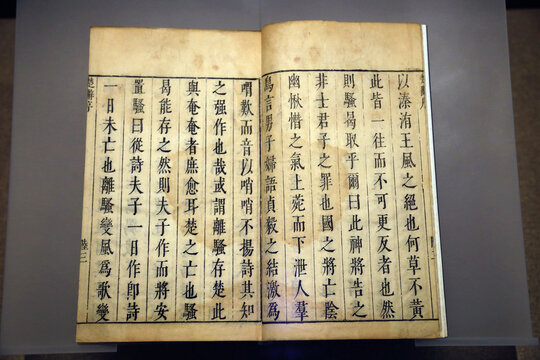 以溱洧王風之絕也何草不黃
此皆一往而不可更反者也然
則騷曷取乎爾曰此神將告之
非士君子之罪也國之將亡陰
幽愀惜之氣上蒸而下泄人羣
鳥言男子婦語貞毅之結激為
噍歎而音以哨哨不揚詩其知
之强作也哉或謂離騷存楚此
與奄奄者庶愈耳楚之亡也騷
曷能存之然則夫子作而將安
置騷曰從詩夫子一日作即詩
一日未亡也離騷變風爲歌變
楚辭序